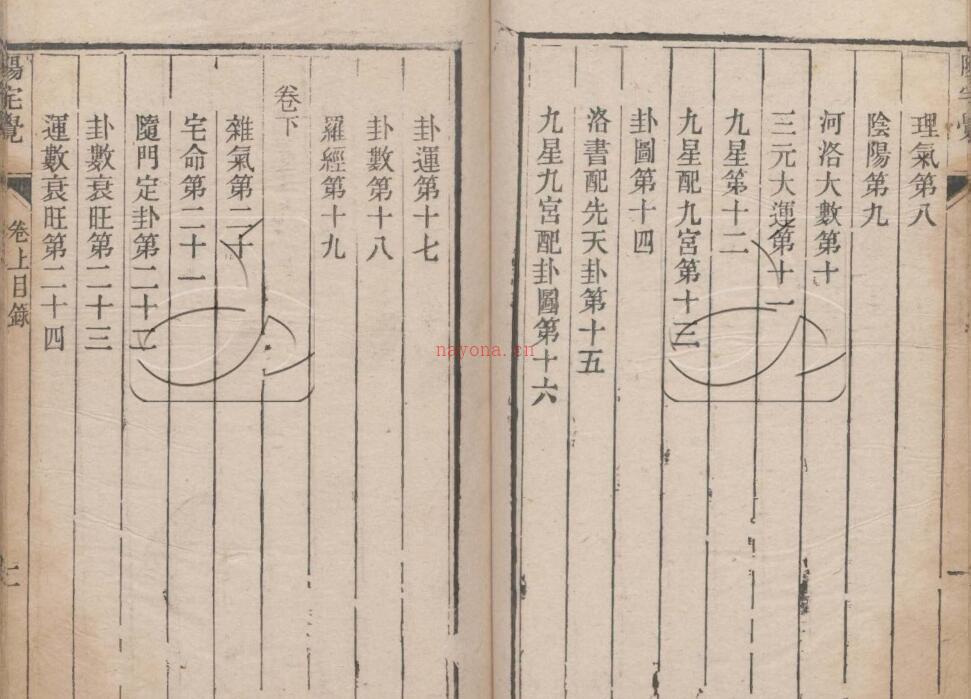 理氣第八
陰陽第九
河洛大數第十
三元大運第十一
九星第十二
九星配九宮第十三
卦圖第十四
洛書配先天卦第十五
九星九宮配卦圖第十六
卦運第十七
卦數第十八
羅經第十九
卷下
雜氣第二十
宅命第二十一
隨門定卦第二十二
卦數衰旺第二十三
運數衰旺第二十四
陽宅覺
卷上目錄
二
nayona.cn